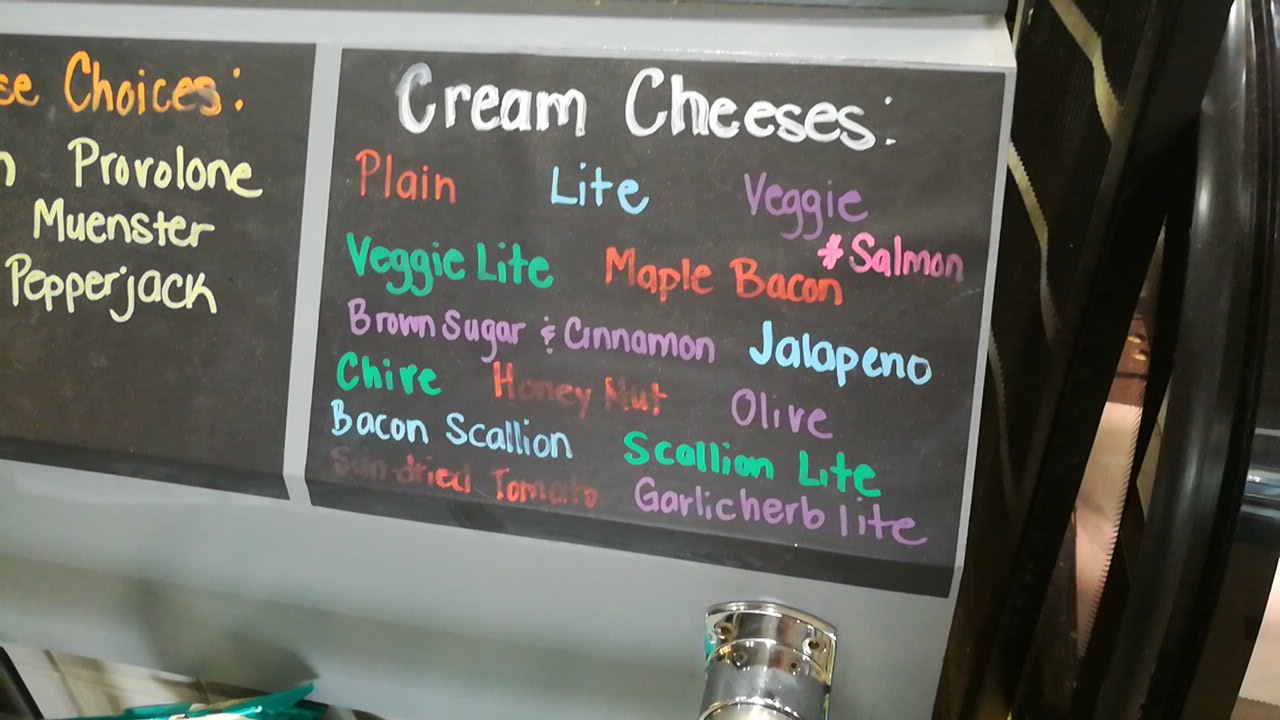 se Choices:
n Provolone
Muenster
Pepperjack
Cream Cheeses:
Plain Lite Veggie
*Salmon
Veggie Lite Maple Bacon
Brown Sugar & Cinnamon Jalapeno
Chive Honey Nut Olive
Bacon Scallion Scallion Lite
Sun-dried Tomato Garlicherb lite